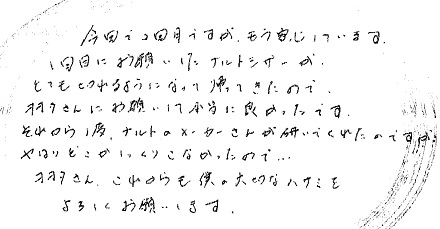 今回で2回目ですが、もう安心しています。
1回目にお願いした ナルトシザーが、
とても切れるようになって帰ってきたので、
さんにお願いして本当に良かったです。
それから1度、ナルトのメーカーさんが研いでくれたのですが、
やはりどこかしっくりこなかったので…
さん、これからも僕の大切なハサミを
よろしくお願いします。